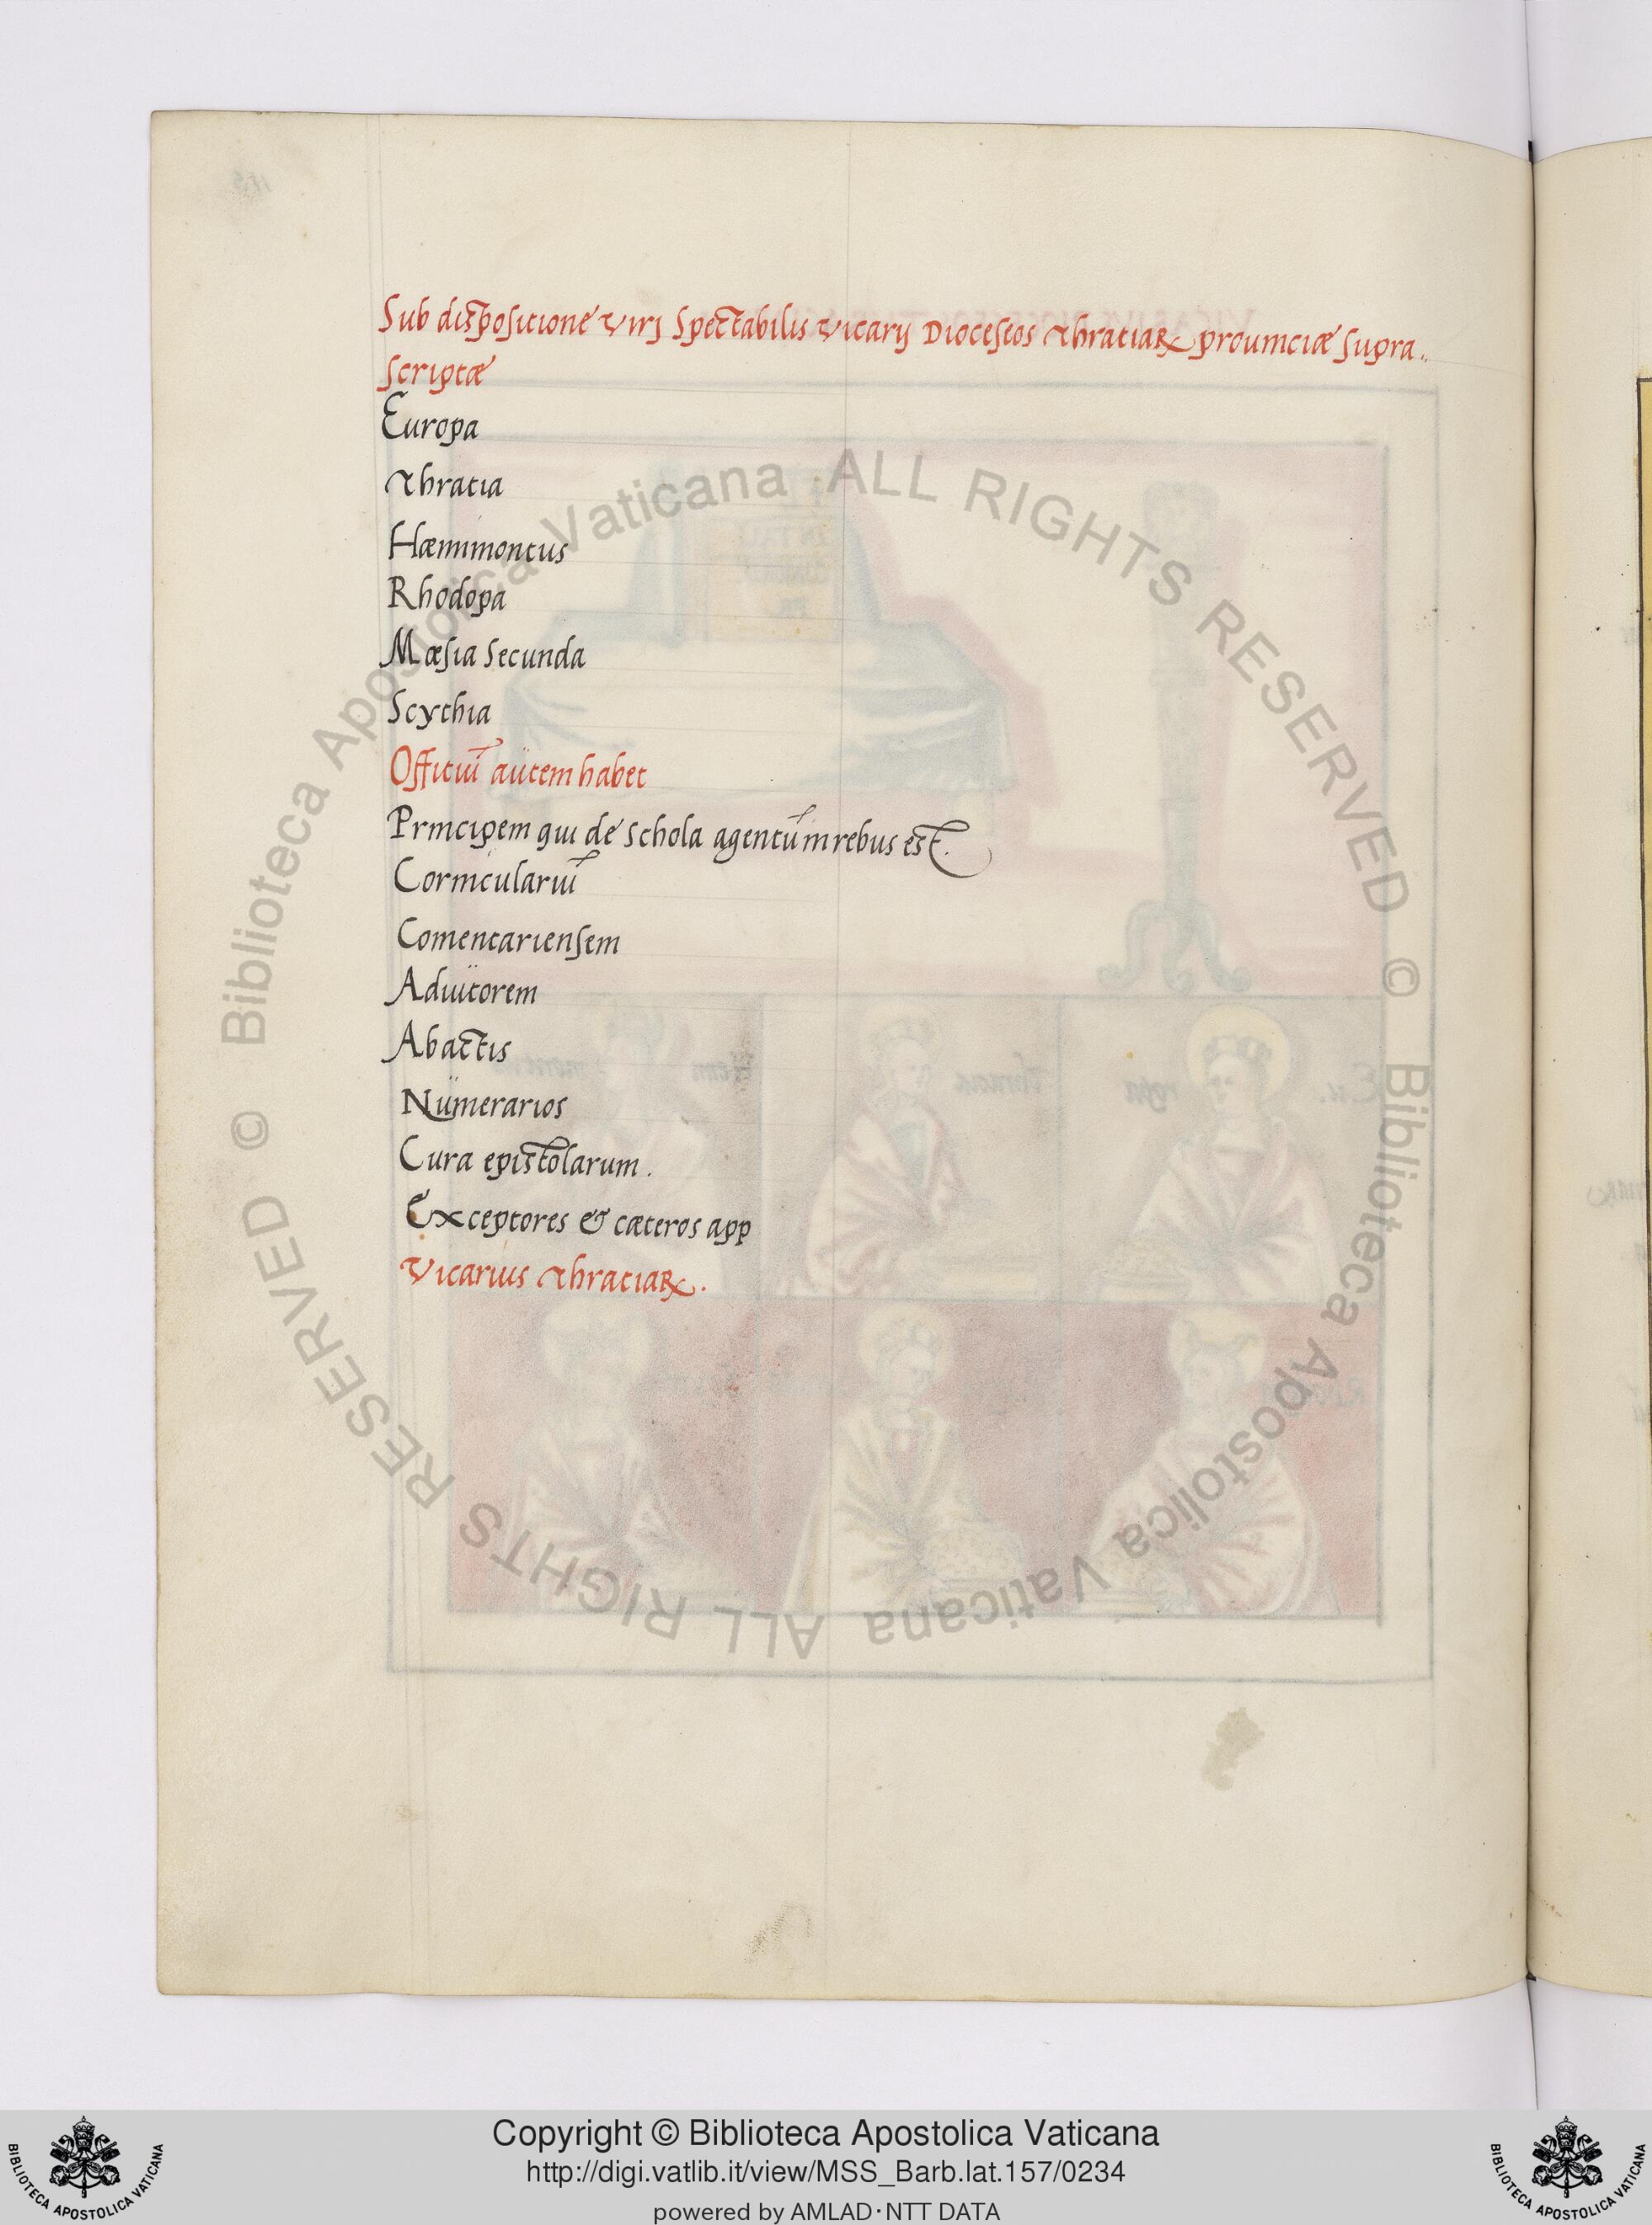 Sub dispositione Viri Spectabilis Vicarij Dioceseos Thratiaℝ prouinciæ supra..
scriptæ
Europa
Thratia
Hæmimontus
Rhodopa
Mæsia secunda
Scythia
Officiū autem habet
Principem qui de schola agentū in rebus est.
Corniculariū
Comentariensem
Adiutorem
Abactis
Numerarios
Cura epistolarum.
Exceptores & cæteros app
Vicarius Thratiaℝ.
© Biblioteca Apostolica Vaticana ALL RIGHTS RESERVED © Biblioteca Apostolica Vaticana ALL RIGHTS RESERVED
Copyright © Biblioteca Apostolica Vaticana
http://digi.vatlib.it/view/MSS_Barb.lat.157/0234
powered by AMLAD·NTT DATA
BIBLIOTECA APOSTOLICA VATICANA
BIBLIOTECA APOSTOLICA VATICANA